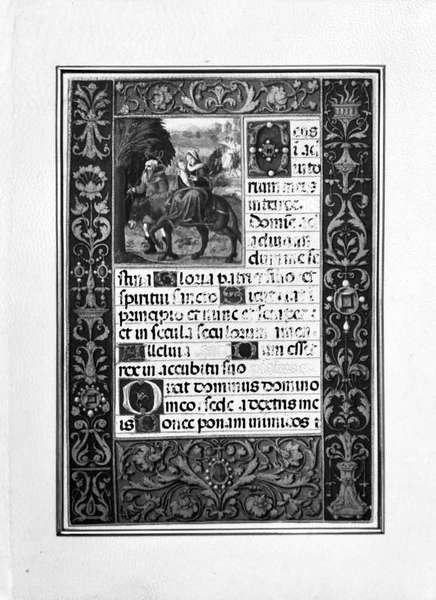 Deus
i ad
iuto
rium meu
intende
Domine ad
adiuuan
dum me fe
stina Gloria patri et filio et
spiritui sancto Sicut erat in
principio et nunc et semper
et in secula seculorum amen
Alleluia Dum esset
rex in accubitu suo
Dixit dominus domino
meo sede a dextris me
is Donec ponam inimicos t